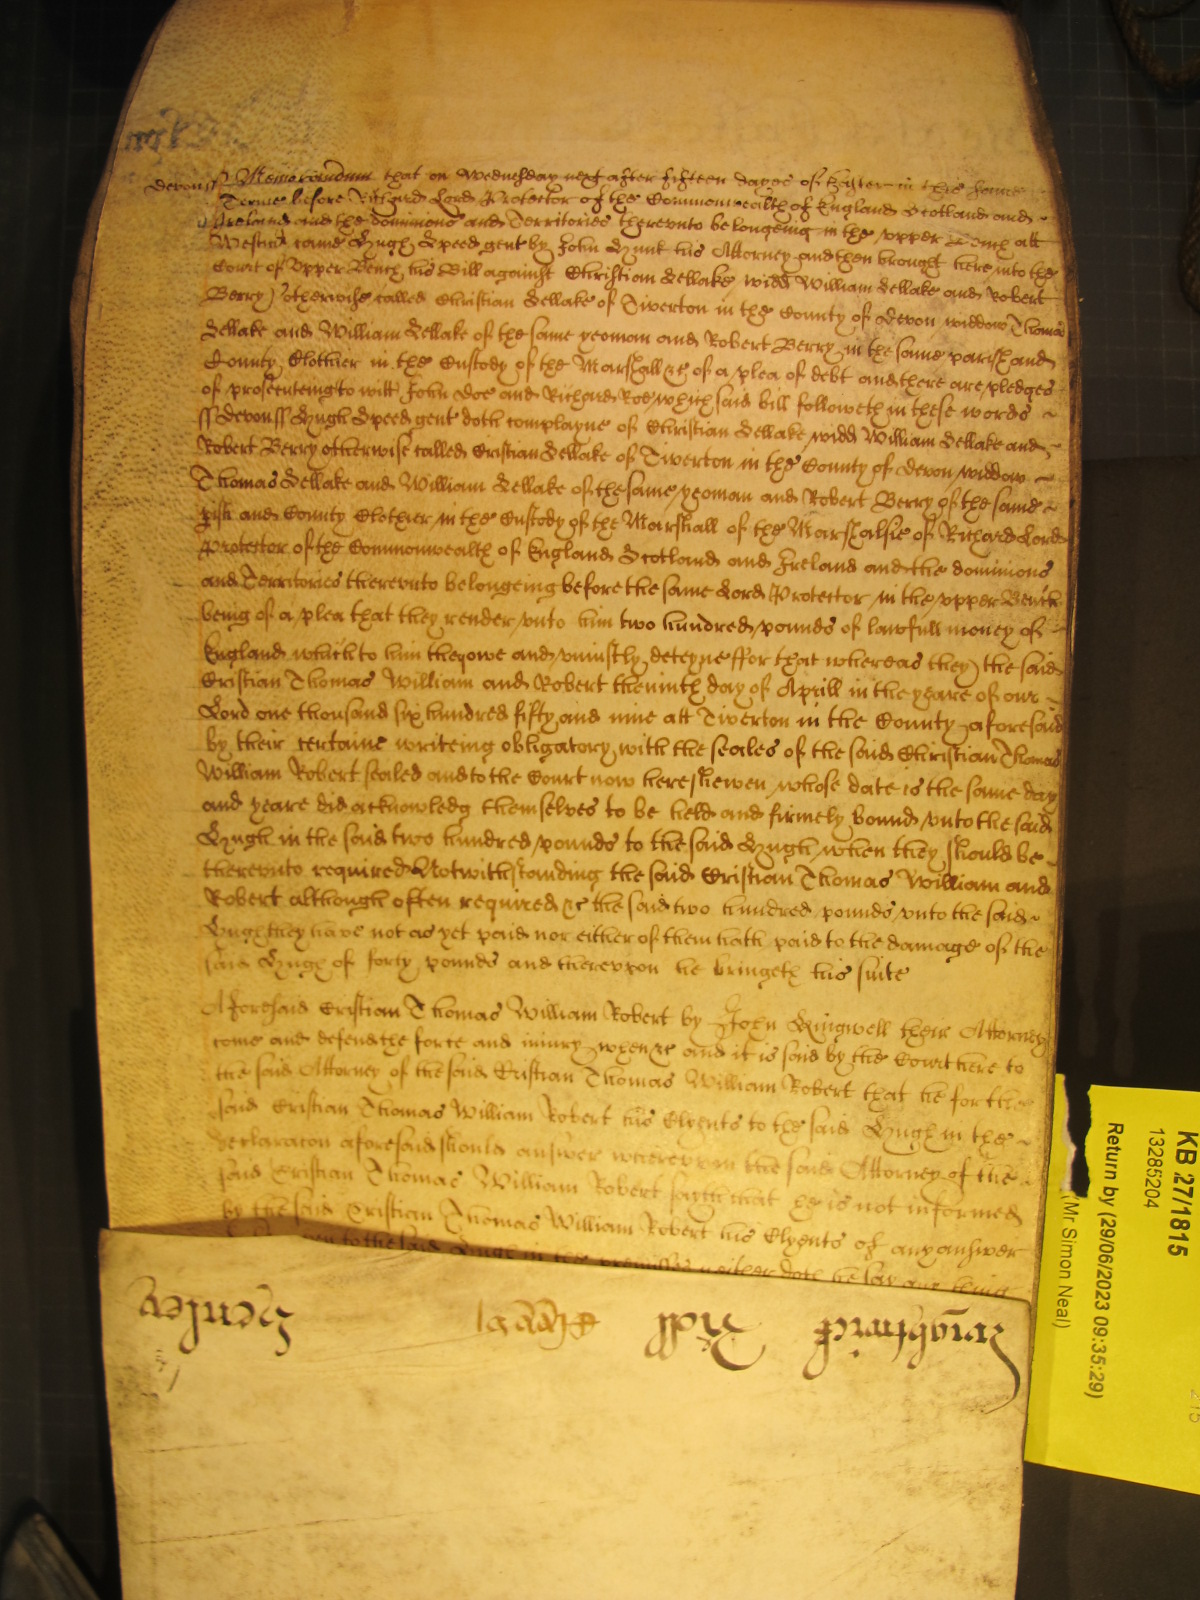 Devon ss Memorandum that on Wednesday next after fifteen dayes of Easter in this same
Terme before Richard Lord Protector of the Commonwealth of England Scotland and
Ireland and the dominions and Territories therevnto belongeing in the vpper Bench att
Westmr came Hugh Speed gent by John Hunt his Attorney and then brought here into the
Court of Vpper Bench his Bill against Christian Sellake widd William Sellake and Robert
Berry otherwise called Christian Sellake of Tiverton in the County of Devon widdow Thomas
Sellake and William Sellake of the same yeoman and Robert Berry in the same parish and
County Clothier in the Custody of the Marshall &c of a plea of debt and there are pledges
of prosecuteing to witt John Doe and Richard Roe which said bill followeth in these words
ss Devon ss Hugh Speed gent doth complayne of Christian Sellake widd William Sellake and
Robert Berry otherwise called Cristian Sellake of Tiverton in the County of Devon widdow
Thomas Sellake and William Sellake of the same yeoman and Robert Berry of the same
pish and County Clothier in the Custody of the Marshall of the Marshalsie of Richard Lord
Protector of the Commonwealth of England Scotland and Ireland and the dominions
and Territories therevnto belongeing before the same Lord Protector in the vpper Bench
being of a plea that they render vnto him two hundred pounds of lawfull money of
England which to him they owe and vniustly deteyne ffor that whereas they the said
Cristian Thomas William and Robert the ninth day of Aprill in the yeare of our
Lord one thousand six hundred fifty and nine att Tiverton in the County aforesaid
by their certaine writeing obligatory with the seales of the said Christian Thomas
William Robert sealed and to the Court now here shewen whose date is the same day
and yeare did acknowledg themselves to be held and firmely bound vnto the said
Hugh in the said two hundred pounds to the said Hugh when they should be
therevnto required Notwithstanding the said Cristian Thomas William and
Robert although often required &c the said two hundred pounds vnto the said
Hugh they have not as yet paid nor either of them hath paid to the damage of the
said Hugh of forty pounds and therevpon he bringeth his suite
Aforesaid Cristian Thomas William Robert by John Ringwell their Attorney
come and defend the force and iniury when &c and it is said by the Court here to
the said Attorney of the said Cristian Thomas William Robert that he for the
said Cristian Thomas William Robert his Clyents to the said Hugh in the
declaracon aforesaid should answer wherevpon the said Attorney of the
said Cristian Thomas William Robert sayth that he is not informed
by the said Cristian Thomas William Robert his Clyents of any answer
to the said Hugh in the premisses neither doth he say any thing
Henley
Wightwick
KB 27/1815
13285204
Return by (29/06/2023 09:35:29)
(Mr Simon Neal)